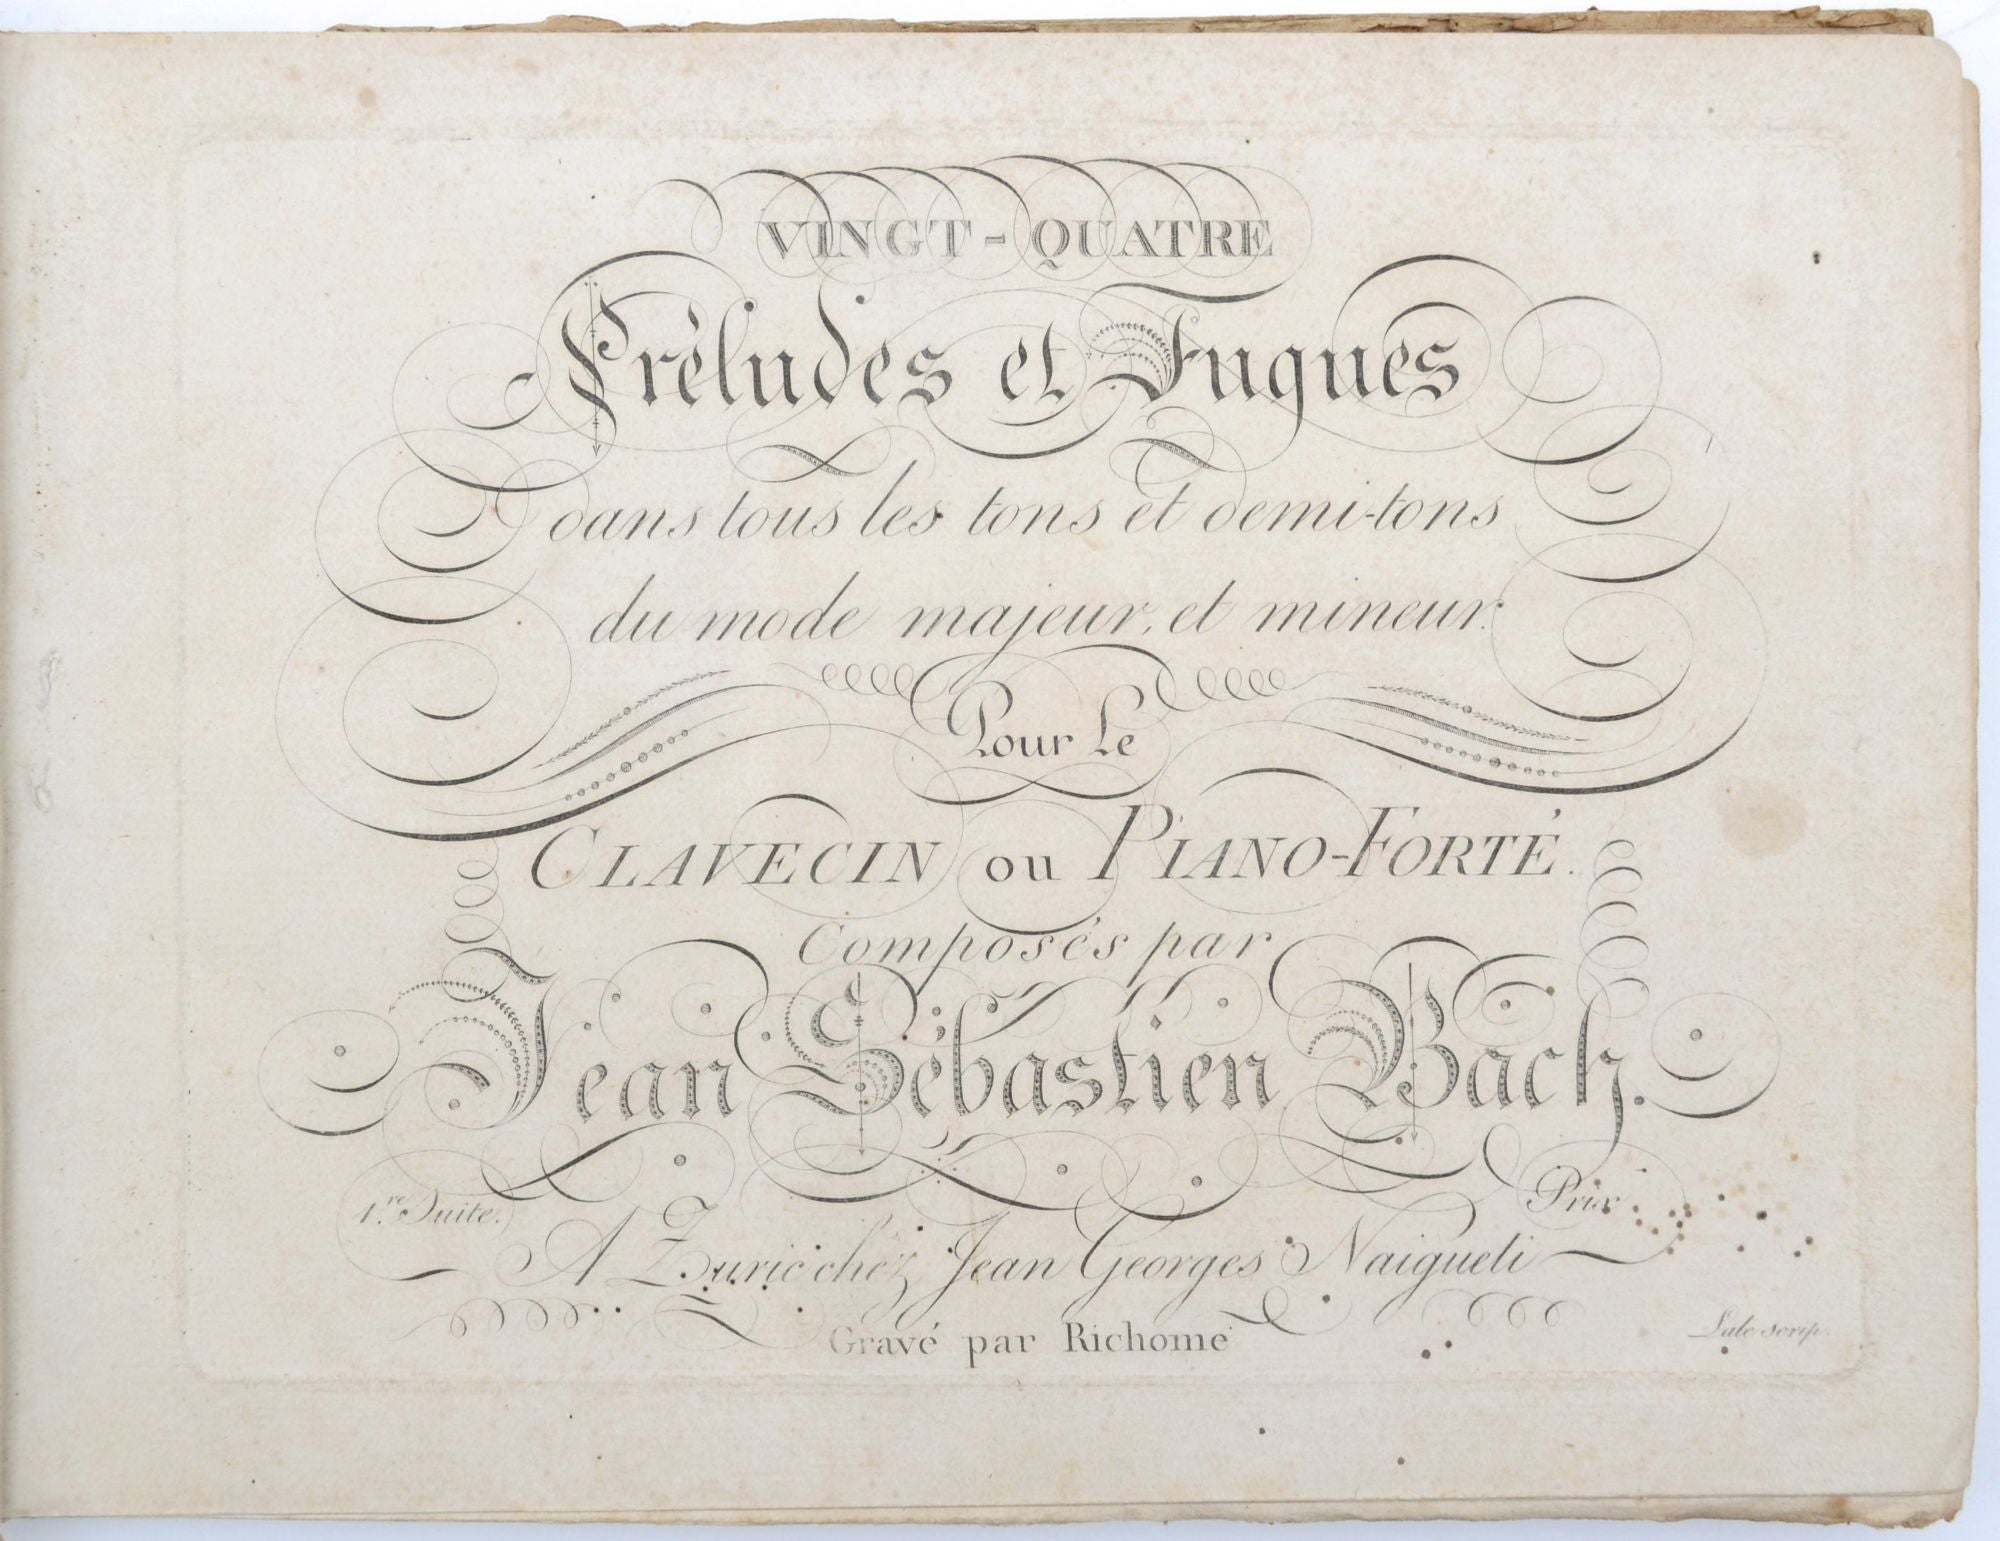 VINGT-QUATRE
Préludes et Fugues
dans tous les tons et demi-tons
du mode majeur, et mineur.
Pour Le
CLAVECIN ou PIANO-FORTÉ.
Composés par
Jean Sébastien Bach.
1.re Suite.
Prix
A Zuric chéz Jean Georges Naigueli
Gravé par Richome
Lale scrip.